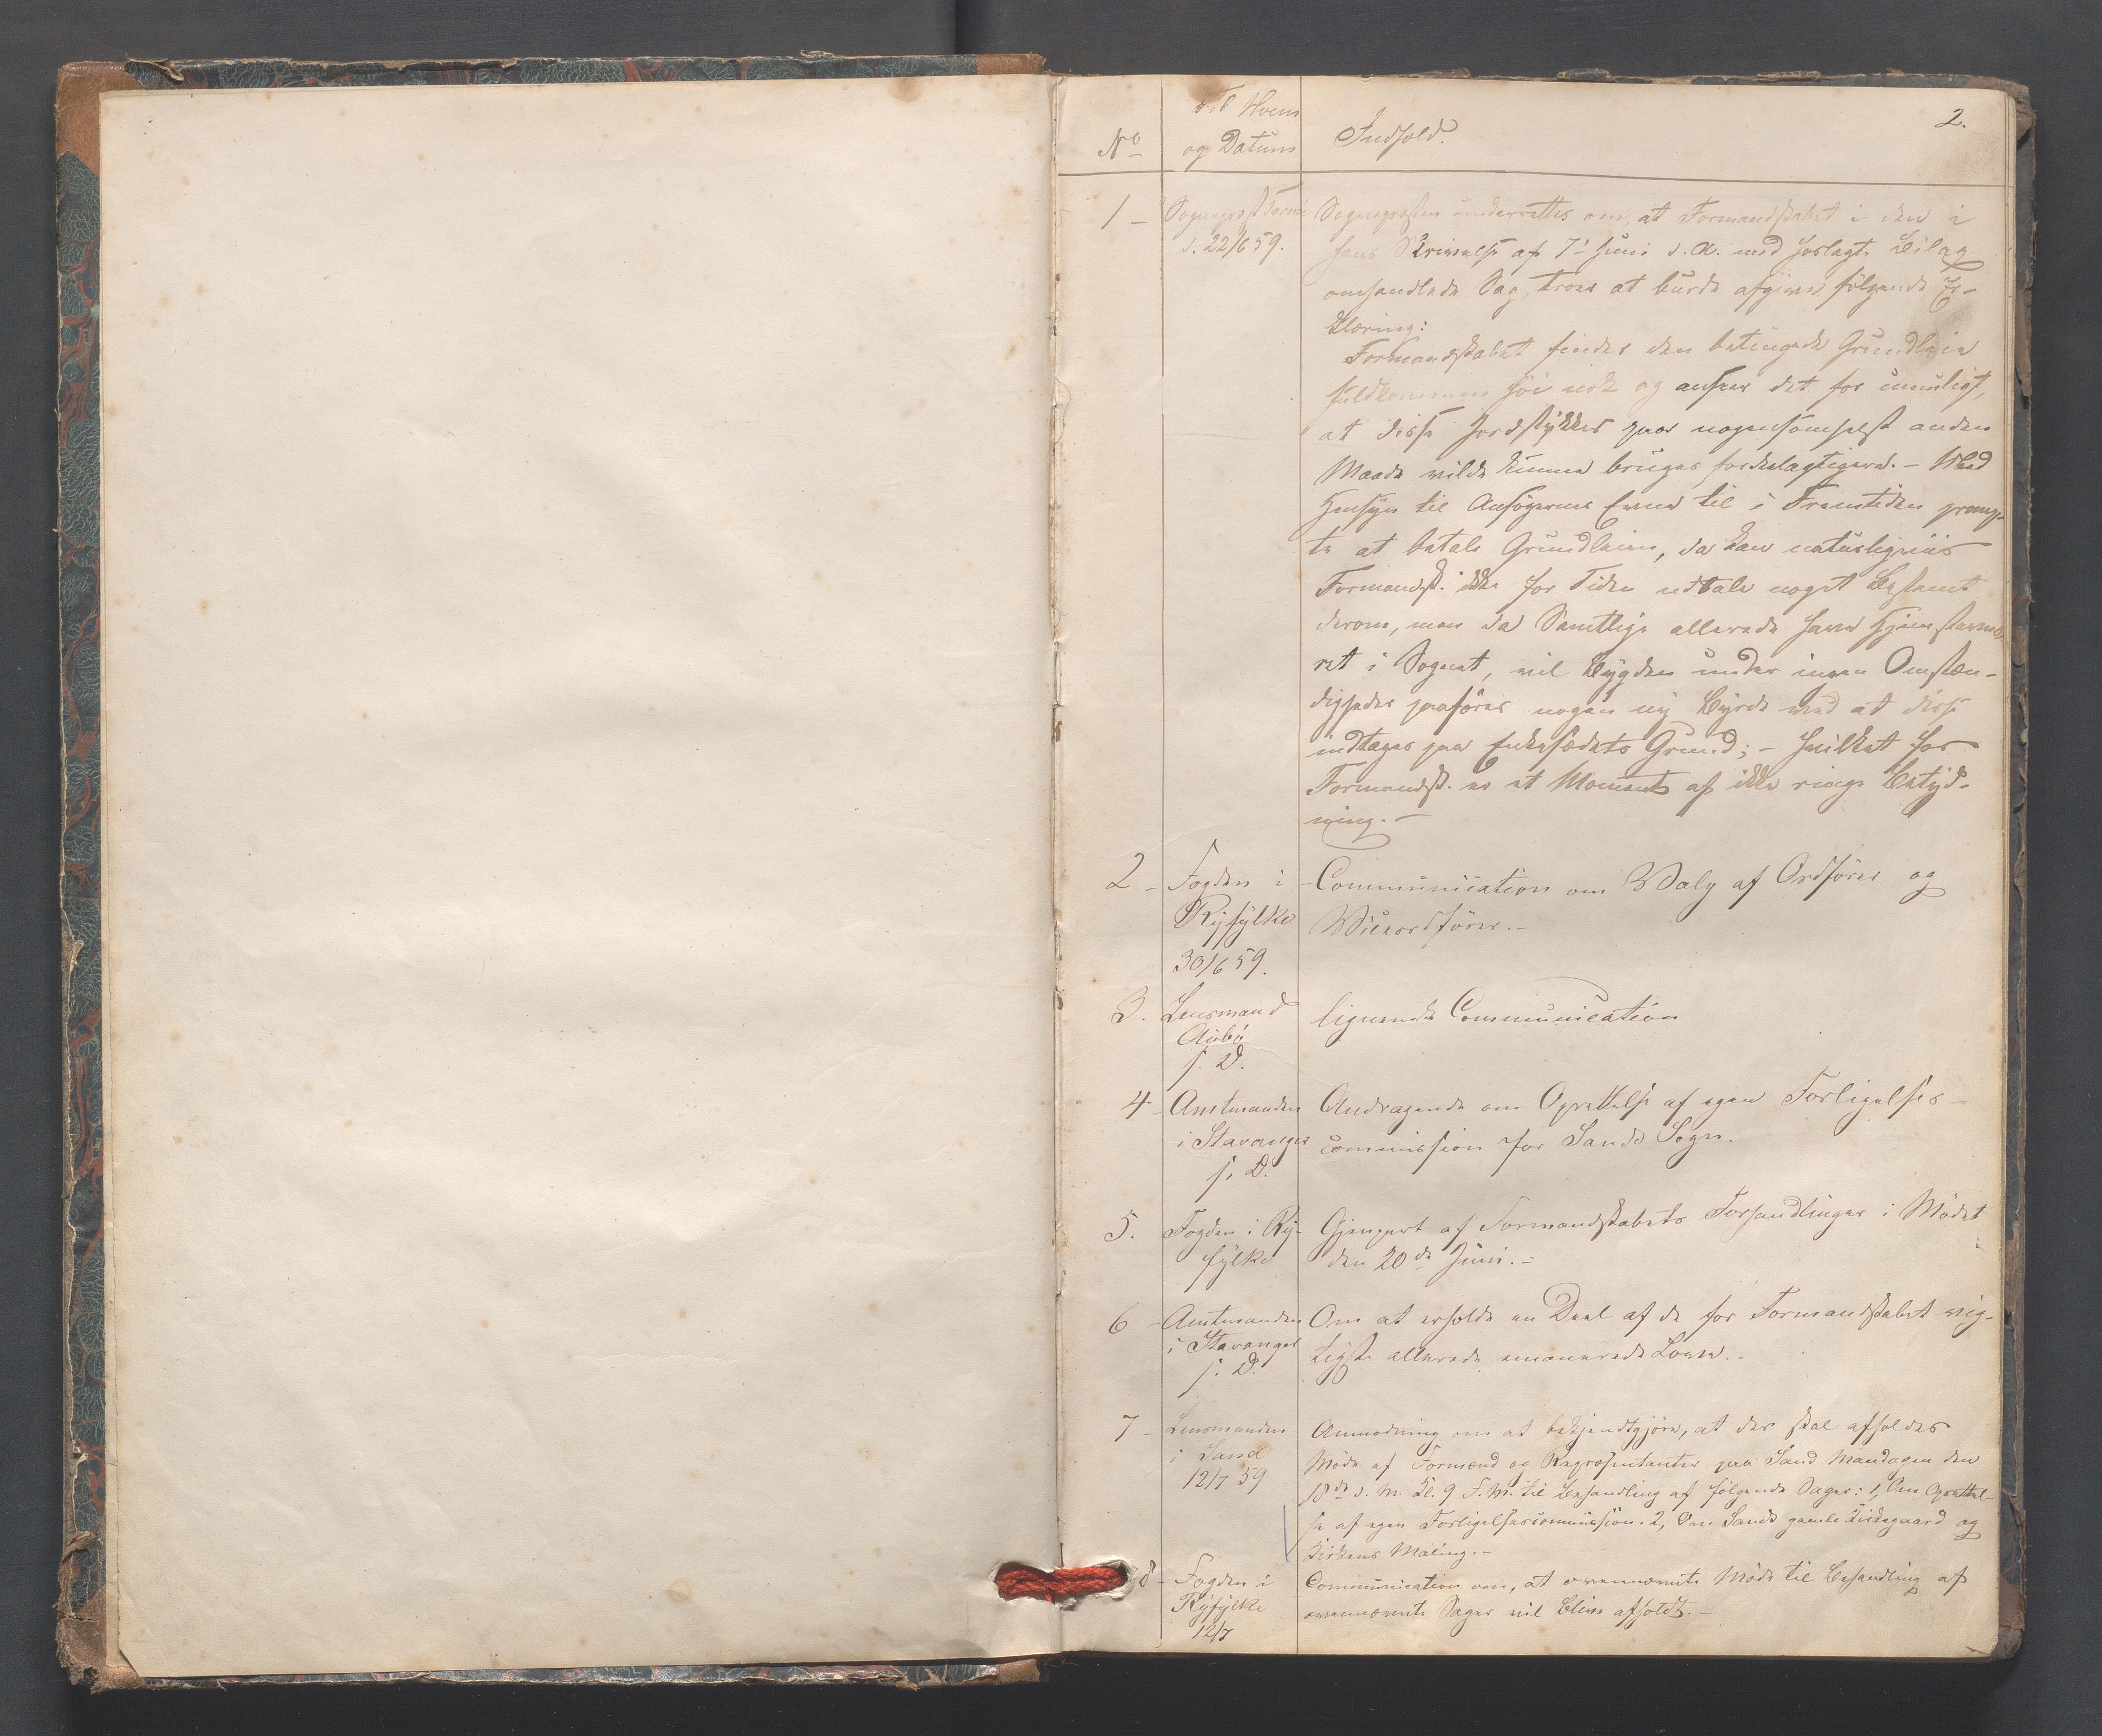 2.
Til Hvem
No og Datum Indhold.
1 - Sognepræst
d. 22/6 59.
Sognepræsten underrettes om, at Formandskabet i den i
hans Skrivelse af 7de Juni d. A. med forlagte Bilag
omhandlede Sag, troer at burde afgive følgende Er-
klæring:
Formandskabet finder den betingede Grundleie
fuldkommen høi nok og anseer det for umuligt,
at disse Jordstykker paa nogensomhelst anden
Maade vilde kunne bruges fordeelagtigere. - Med
Hensyn til Ansøgernes Evne til i Fremtiden promp-
te at betale Grundleien, da kan naturligviis
Formandsk. ikke for Tiden udtale noget bestemt
derom, men da Samtlige allerede have Hjemstavns-
ret i Sognet, vil Bygden under ingen Omstæn-
digheder paaføres nogen ny Byrde ved at disse
indtages paa Enkesædets Grund; - hvilket for
Formandsk. er et Moment af ikke ringe Betyd-
ning. -
2 - Fogden i
Ryfylke
30/6 59.
Communication om Valg af Ordfører og
Viceordfører. -
3. Lensmand
Aubø
s. D.
lignende Communication
4 - Amtmanden
i Stavanger
s. D.
Andragende om Oprettelse af egen Forligelses-
commission for Sands Sogn.
5. Fogden i Ry-
fylke
Gjenpart af Formandskabets Forhandlinger i Mødet
den 20de Juni. -
6 - Amtmanden
i Stavanger
s. D.
Om at erholde en Deel af de for Formandskabet vig-
tigste allerede emanerede Love. -
7 - Lensmanden
i Sand
12/7 59
Anmodning om at bekjendtgjøre, at der skal afholdes
Møde af Formænd og Repræsentanter paa Sand Mandagen den
18de d. M. Kl. 9 F. M. til Behandling af følgende Sager: 1, Om Oprettel-
se af egen Forligelsescommission. 2, Om Sands gamle Kirkegaard og
Kirkens Maling. -
8 - Fogden i
Ryfylke
12/7
Communication om, at ovennævnte Møde til Behandling af
ovennævnte Sager vil blive afholdt. -